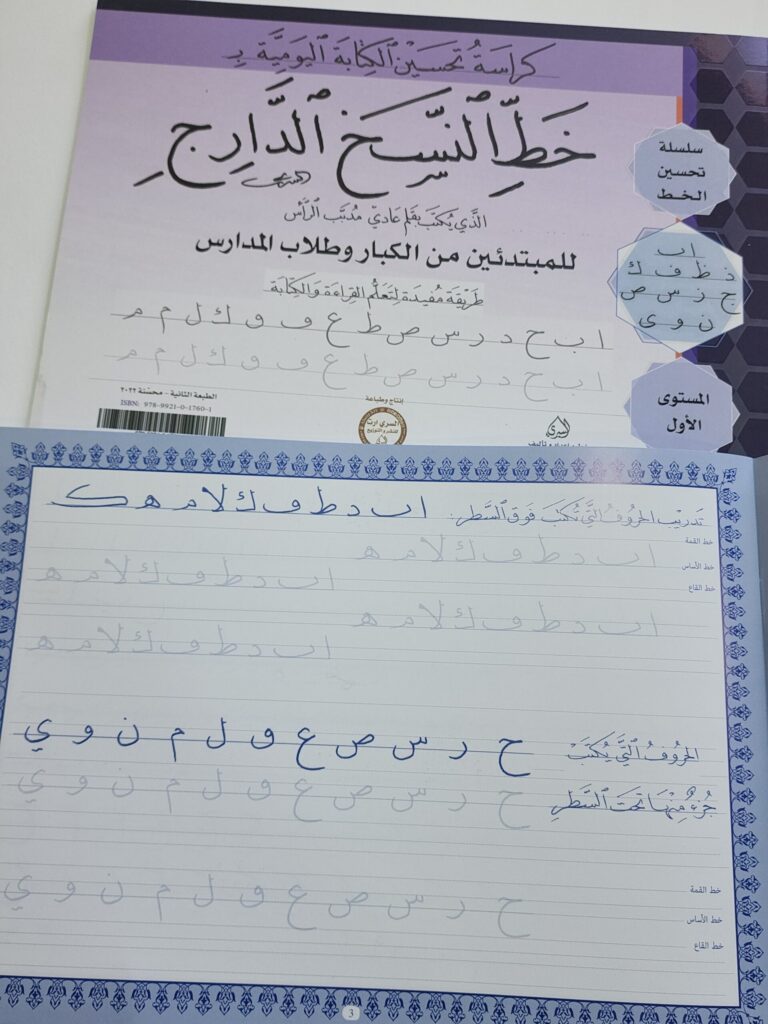 كراسة تحسين الكتابة اليومية بـ
خط النسخ الدارج
الذي يكتب بقلم عادي مدبب الرأس
للمبتدئين من الكبار وطلاب المدارس
طريقة مفيدة لتعلم القراءة والكتابة
ا ب ح د ر س ص ط ع ف و ك ل م م
ا ب ح د ر س ص ط ع ف و ك ل م م
سلسلة
تحسين
الخط
ا ب
د ط ف ك
ح ر س ص
ن و ى
المستوى
الأول
الطبعة الثانية - محسنة ٢٠٢٢
ISBN: 978-9921-0-1760-1
إنتاج وطباعة
السري
تدريب الحروف التي تكتب فوق السطر:
ا ب د ط ف ك لا م ه ك
خط القمة
خط الأساس
خط القاع
ا ب د ط ف ك لا م ه
ا ب د ط ف ك لا م ه
ا ب د ط ف ك لا م ه
ا ب د ط ف ك لا م ه
الحروف التي يكتب
جزء منها تحت السطر
ح ر س ص ع ق ل م ن و ي
ح ر س ص ع ق ل م ن و ي
خط القمة
خط الأساس
خط القاع
ح ر س ص ع ق ل م ن و ي
3